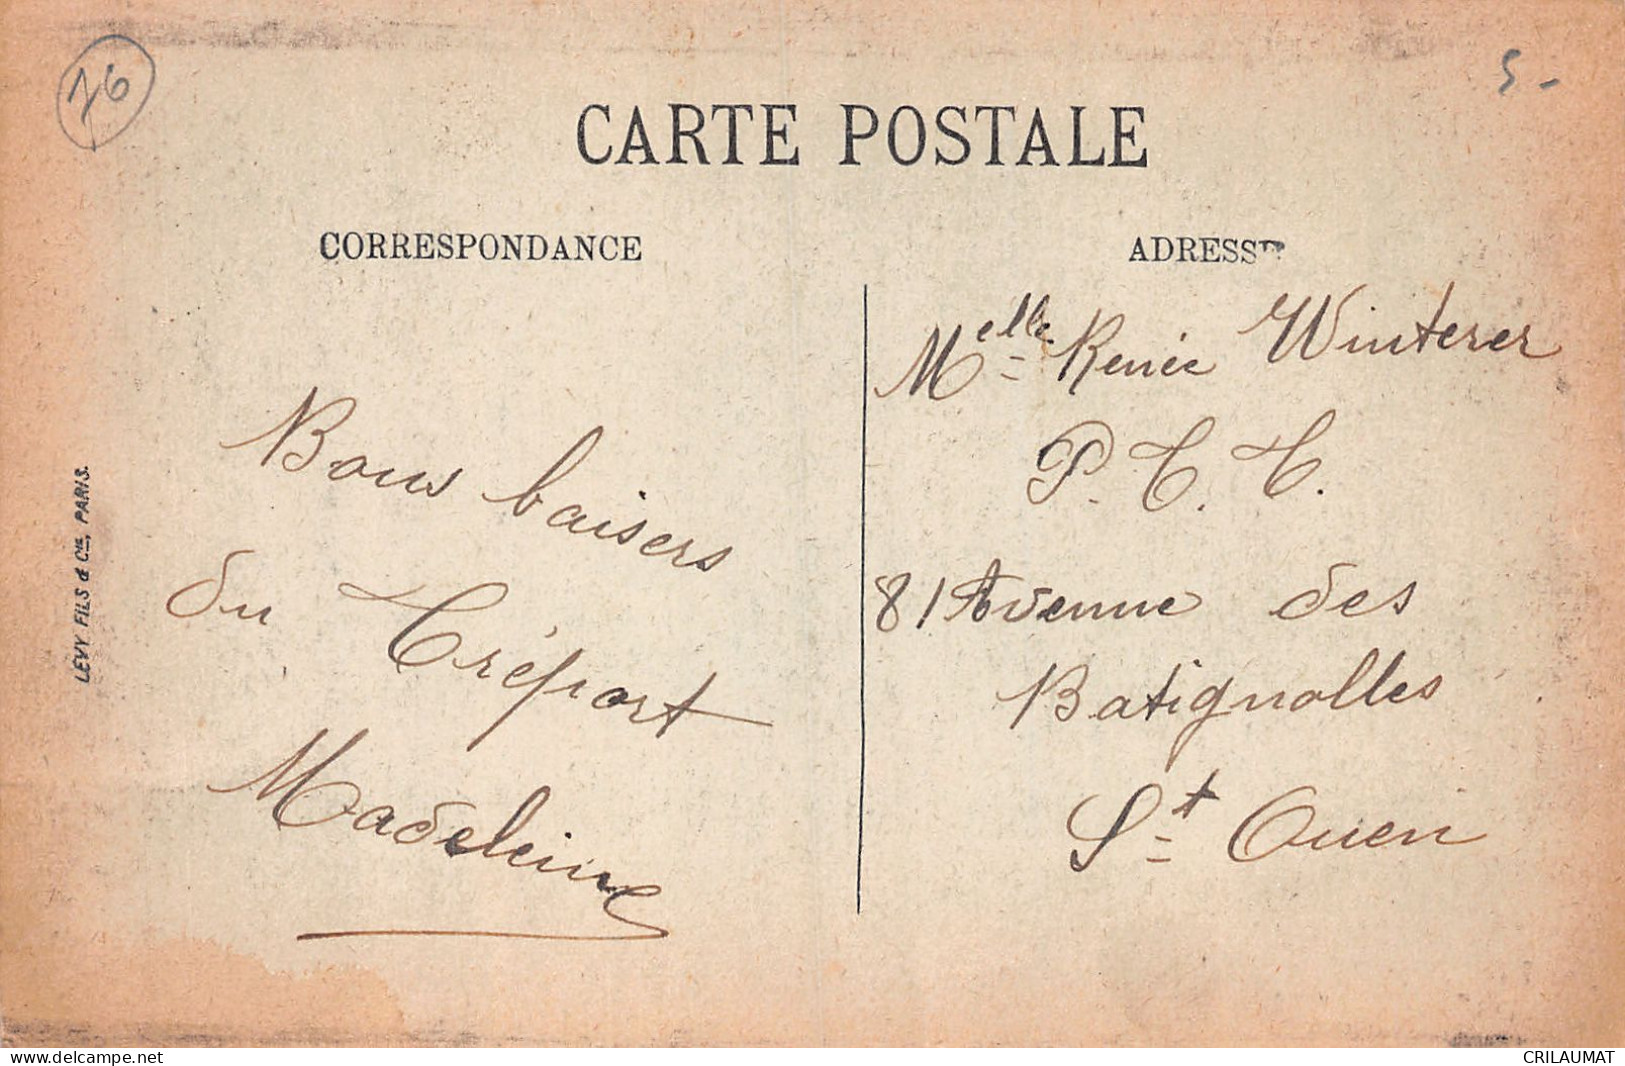 76
5-
CARTE POSTALE
CORRESPONDANCE
ADRESSE
Bons baisers
du Tréport
Madeleine
Melle Renée Winterer
P. T. T.
81 Avenue des
Batignolles
St Ouen
LEVY FILS & Cie, PARIS.
www.delcampe.net
CRILAUMAT